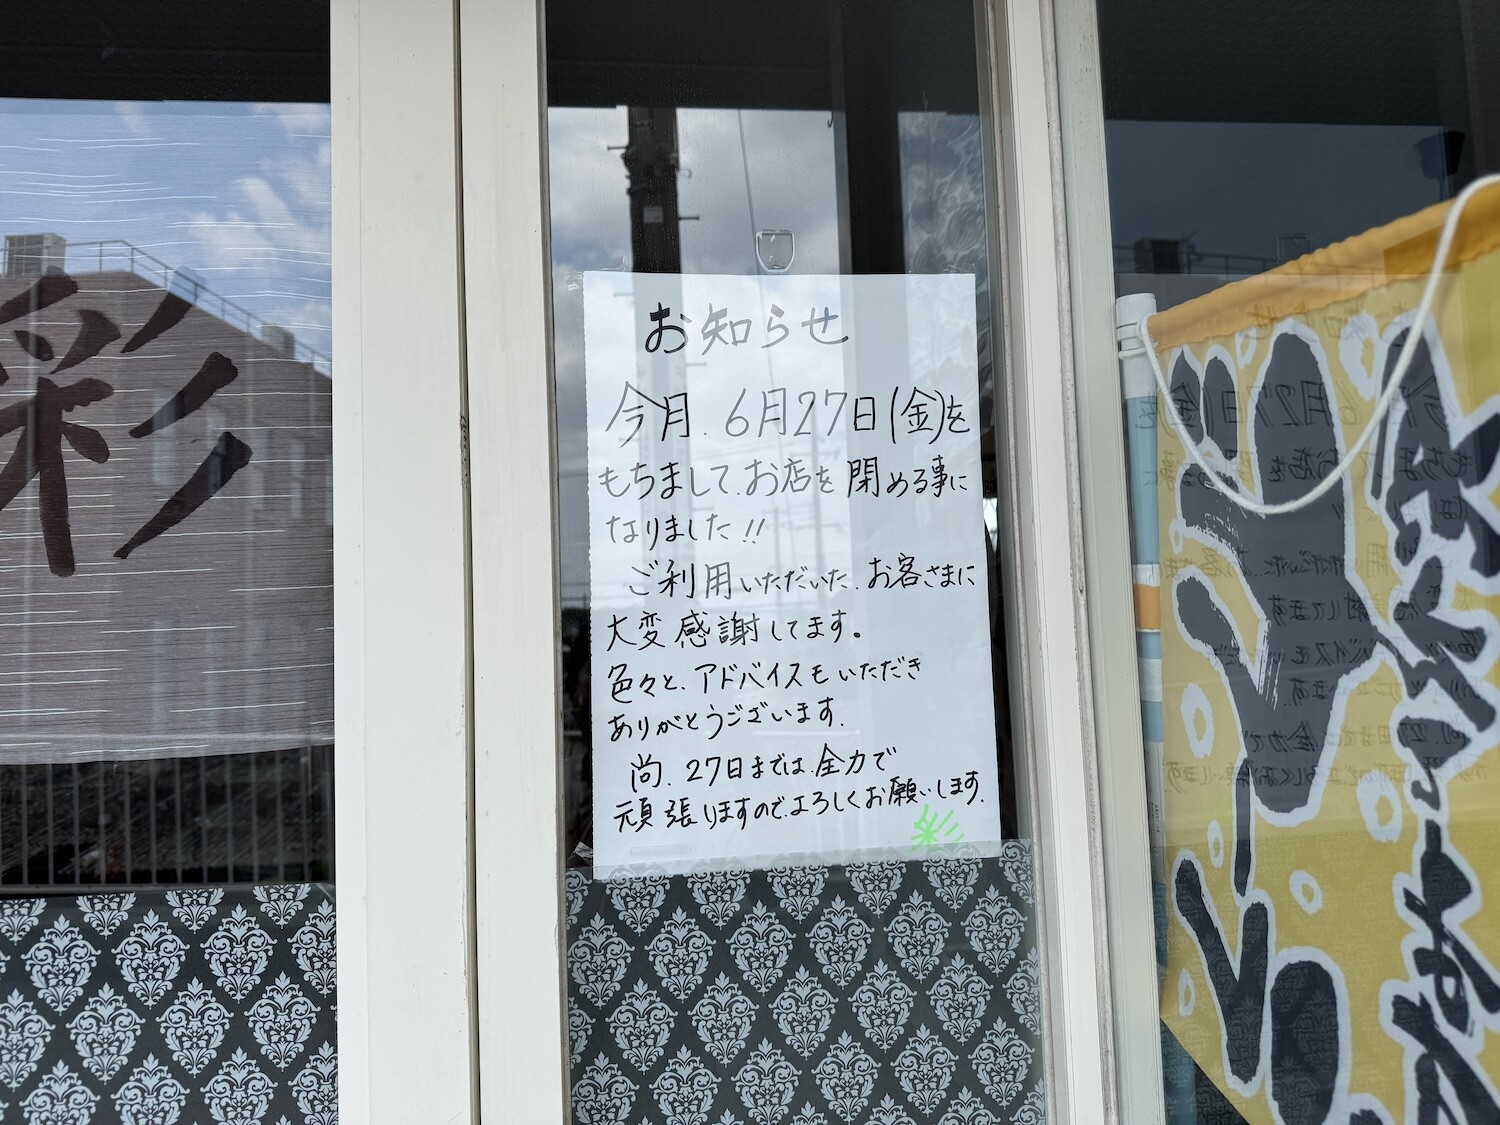 彩
お知らせ
今月.6月27日(金)を
もちまして.お店を閉める事に
なりました!!
ご利用いただいた.お客さまに
大変感謝してます。
色々と.アドバイスもいただき
ありがとうございます.
尚.27日までは.全力で
頑張りますので.よろしくお願いします.
彩